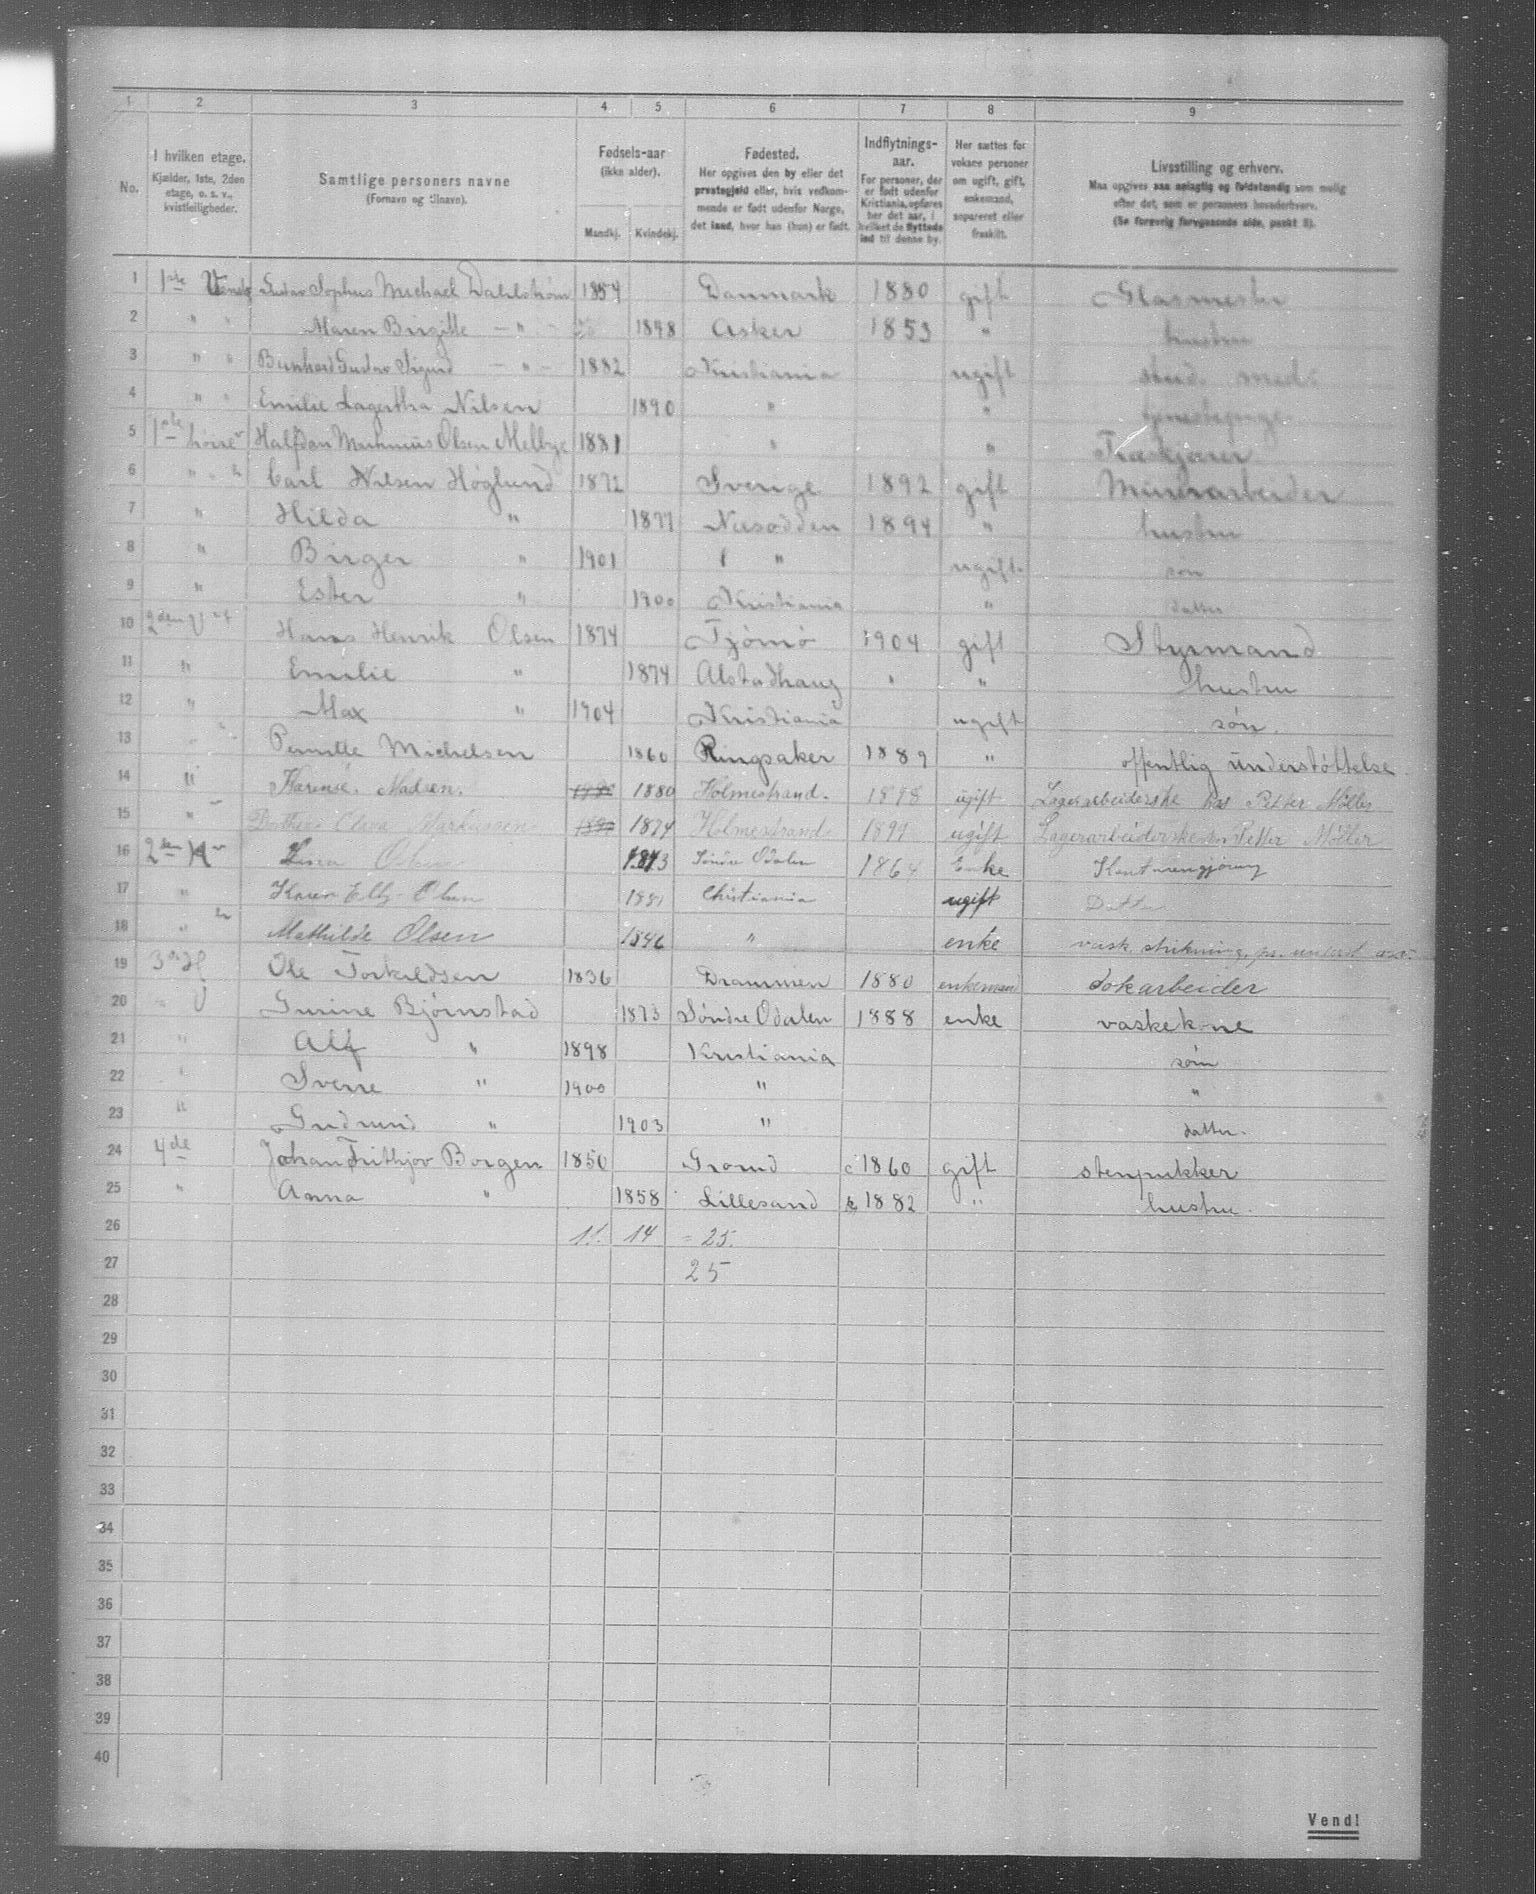 1 2 3 4 5 6 7 8 9
No. I hvilken etage. Kjælder, 1ste, 2den etage, o. s. v., kvistleiligheder. Samtlige personers navne (Fornavn og tilnavn). Fødsels-aar (ikke alder). Mandkj. Kvindekj. Fødested. Her opgives den by eller det prestegjeld eller, hvis vedkommende er født udenfor Norge, det land, hvor han (hun) er født. Indflytnings-aar. For personer, der er født udenfor Kristiania, opføres her det aar, i hvilket de flyttede ind til denne by. Her sættes for voksne personer om ugift, gift, enkemand, separeret eller fraskilt. Livsstilling og erhverv. Maa opgives saa nøiagtig og fuldstændig som mulig efter det, som er personens hovederhverv. (Se forøvrig foregaaende side, punkt 5).
1 1ste Sophus Michael Dahlstrøm 1854 Danmark 1880 gift Glasmester
2 " " Maren Birgitte — " — 1898 Asker 1853 " hustru
3 " " Bernhard Gustav Sigurd — " — 1882 Kristiania ugift stud. med.
4 " " Emilie Lagertha Nilsen 1890 " "
5 1ste høire Halfdan Olsen Melbye 1881 " " Træskjærer
6 " " Carl Nilsen Høglund 1872 Sverige 1892 gift Murerarbeider
7 " Hilda " 1877 Nesodden 1894 " hustru
8 " Birger " 1901 " ugift. søn
9 " Ester " 1900 Kristiania " datter
10 2den V Hans Henrik Olsen 1874 Tjømø 1904 gift Styrmand
11 " Emilie " 1874 Alstadhaug " " hustru
12 " Max " 1904 Kristiania ugift søn.
13 Pernille Michelsen 1860 Ringsaker 1889 " offentlig understøttelse.
14 " Madsen. 1880 Holmestrand. 1898 ugift Lagerarbeiderske hos Petter Möller
15 " Markussen 1874 Holmestrand 1897 ugift Lagerarbeiderske hos Petter Möller
16 2den H 1843 Søndre Odalen 1864 Enke
17 " Karen Elly Olsen 1881 Christiania ugift Datter
18 " Mathilde Olsen 1846 " enke
19 3die H Ole Torkildsen 1836 Drammen 1880 enkemand Dokarbeider
20 " V Gurine Bjørnstad 1873 Søndre Odalen 1888 enke vaskekone
21 " Alf " 1898 Kristiania søn
22 " Sverre " 1900 " "
23 " Gudrund " 1903 " datter.
24 4de Johan Frithjov Borgen 1850 Grorud c 1860 gift stenpukker
25 " Anna " 1858 Lillesand c 1882 " hustru.
26 11. 14 = 25.
27 25
28
29
30
31
32
33
34
35
36
37
38
39
40
Vend!